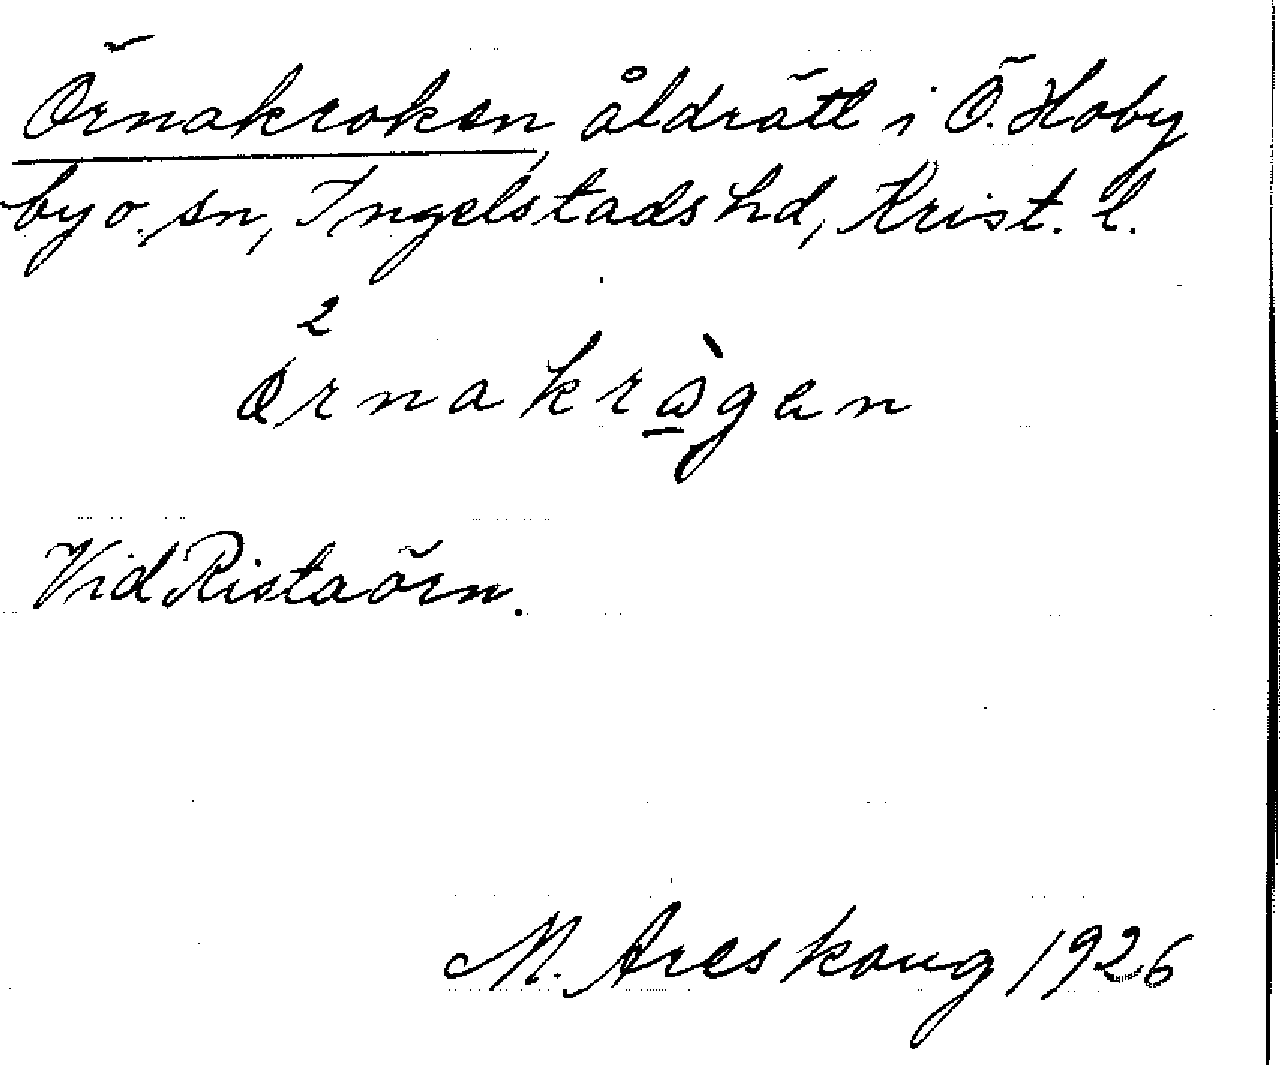 Örnakroken, åldrätt i Ö. Hoby
by o. sn, Ingelstads hd, Krist. l.
2
Örnakràgen
Vid Ristaörn.
M. Areskoug 1926